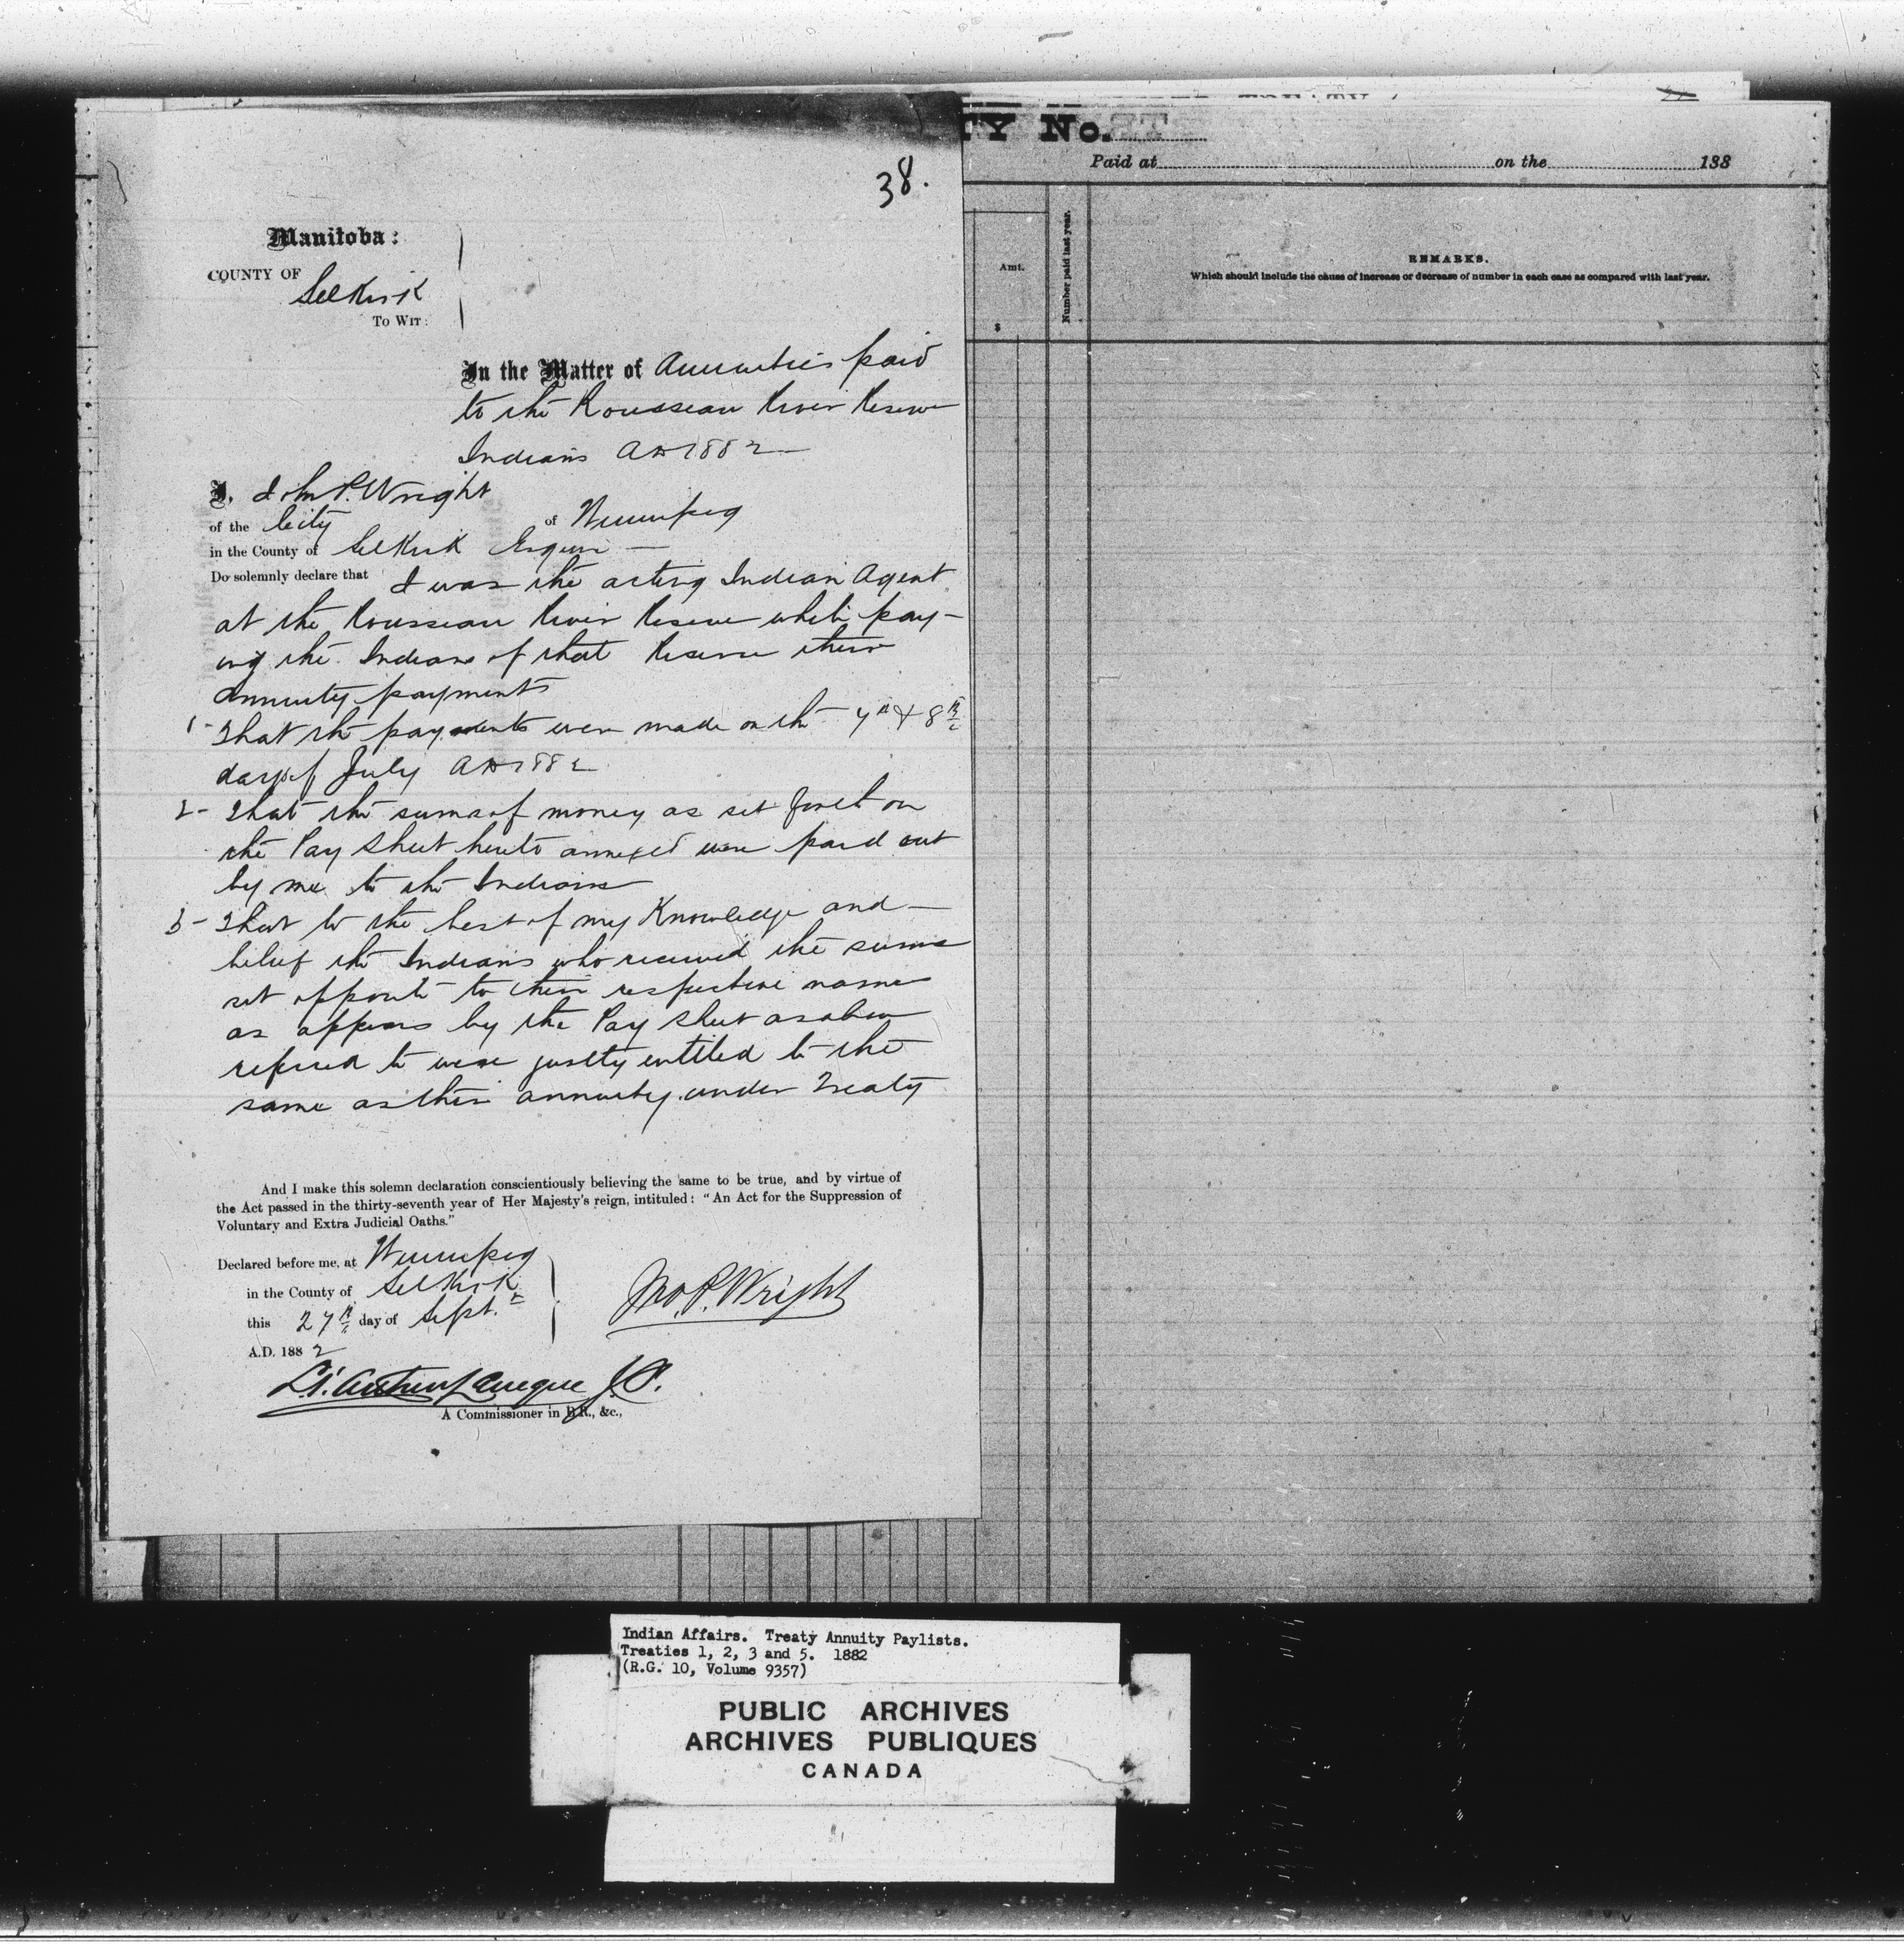 38.
Manitoba:
COUNTY OF Selkirk
TO WIT:
In the Matter of Annuities paid
to the Rousseau River Reserve
Indians AD 1882
I, John P. Wright
of the City of Winnipeg
in the County of Selkirk Esquire
Do solemnly declare that I was the acting Indian Agent
at the Rousseau River Reserve while pay-
ing the Indians of that Reserve their
annuity payments
1- That the payments were made on the 7th & 8th
days of July AD 1882
2- That the sums of money as set forth on
the Pay Sheet hereto annexed were paid out
by me to the Indians
3- That to the best of my Knowledge and
belief the Indians who received the sums
set opposite to their respective names
as appears by the Pay Sheet as above
referred to were justly entitled to the
same as their annuity under Treaty
And I make this solemn declaration conscientiously believing the same to be true, and by virtue of
the Act passed in the thirty-seventh year of Her Majesty's reign, intituled: "An Act for the Suppression of
Voluntary and Extra Judicial Oaths."
Declared before me, at Winnipeg
in the County of Selkirk
this 27th day of Sept.r
A.D. 1882
Jno. P. Wright
J.P.
A Commissioner in B.R., &c.,
TY No.
Paid at on the 188
Amt.
$
Number paid last year.
REMARKS.
Which should include the cause of increase or decrease of number in each case as compared with last year.
Indian Affairs. Treaty Annuity Paylists.
Treaties 1, 2, 3 and 5. 1882
(R.G. 10, Volume 9357)
PUBLIC ARCHIVES
ARCHIVES PUBLIQUES
CANADA